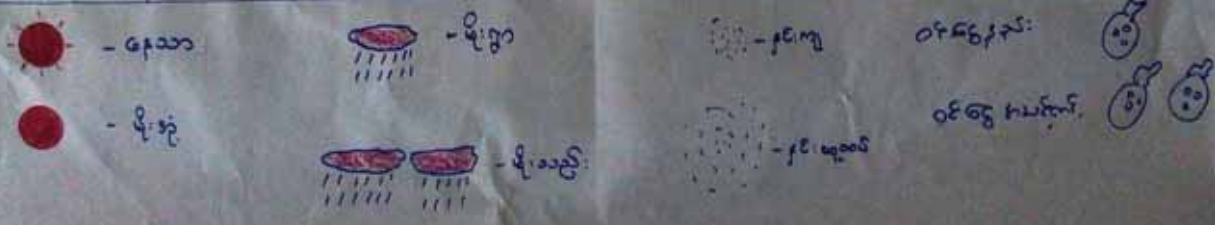 - နေသာ
- မိုးအုံ့
- မိုးရွာ
- မိုးသည်း
- နှင်းကျ
- နှင်းထူထပ်
ဝင်ငွေနည်း
ဝင်ငွေ အသင့်တင့်